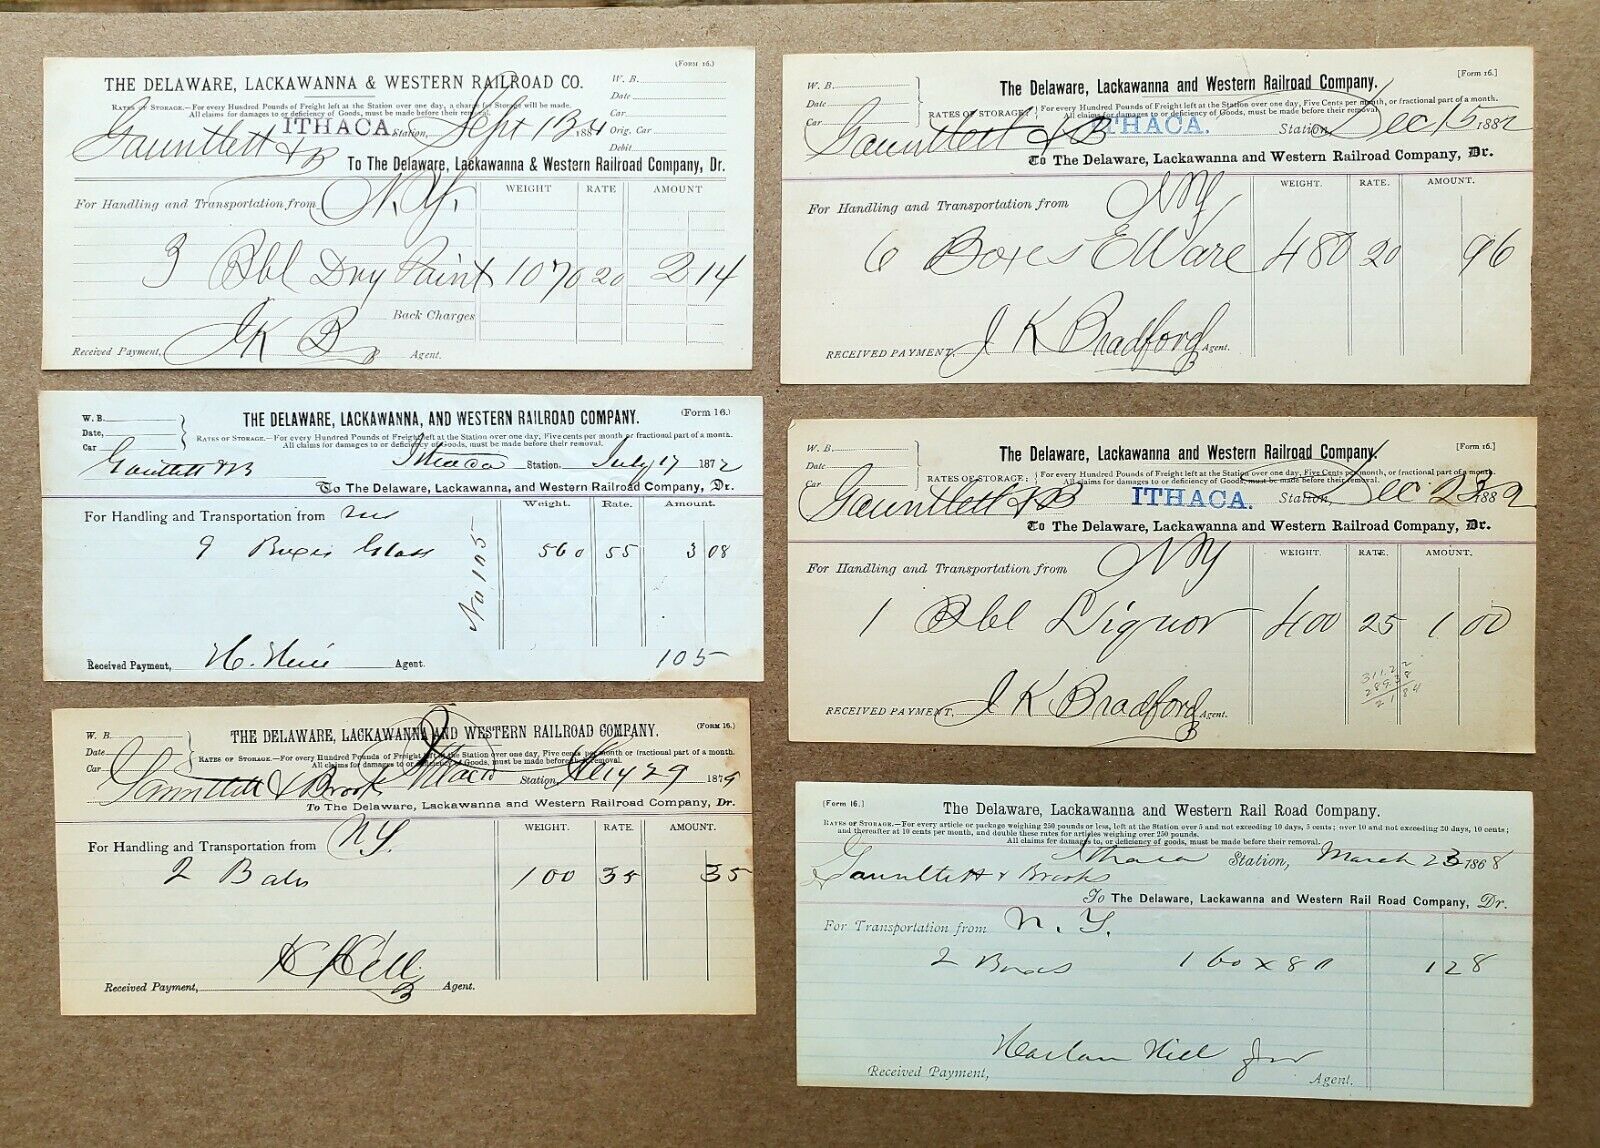 (FORM 16.)
THE DELAWARE, LACKAWANNA & WESTERN RAILROAD CO.
W. B.
Date
Car
Orig. Car
Debit
RATES OF STORAGE.—For every Hundred Pounds of Freight left at the Station over one day, a charge for Storage will be made.
All claims for damages to or deficiency of Goods, must be made before their removal.
ITHACA Station, Sept 13 1884
Gauntlett & B
To The Delaware, Lackawanna & Western Railroad Company, Dr.
WEIGHT RATE AMOUNT
For Handling and Transportation from N.Y.
3 Bbl Dry Paint 1070 20 2 14
Back Charges
Received Payment, J K B Agent.
(Form 16.)
THE DELAWARE, LACKAWANNA, AND WESTERN RAILROAD COMPANY.
W. B.
Date,
Car
RATES OF STORAGE.—For every Hundred Pounds of Freight left at the Station over one day, Five cents per month or fractional part of a month.
All claims for damages to or deficiency of Goods, must be made before their removal.
Gauntlett & B Ithaca Station. July 17 1872
To The Delaware, Lackawanna, and Western Railroad Company, Dr.
Weight. Rate. Amount.
For Handling and Transportation from
9 Boxes Glass No 105 560 55 3 08
Received Payment, Agent.
105
(FORM 16.)
THE DELAWARE, LACKAWANNA AND WESTERN RAILROAD COMPANY.
W. B.
Date
Car
RATES OF STORAGE.—For every Hundred Pounds of Freight left at the Station over one day, Five cents per month or fractional part of a month.
All claims for damages to or deficiency of Goods, must be made before their removal.
Gauntlett & Brooks Ithaca Station, 29 1879
To The Delaware, Lackawanna and Western Railroad Company, Dr.
WEIGHT. RATE. AMOUNT.
For Handling and Transportation from N.Y.
2 Bales 100 35 35
Received Payment, Agent.
[Form 16.]
The Delaware, Lackawanna and Western Railroad Company.
W. B.
Date
Car
RATES OF STORAGE: For every Hundred Pounds of Freight left at the Station over one day, Five Cents per month, or fractional part of a month.
All claims for damages to or deficiency of Goods, must be made before their removal.
Gauntlett & B ITHACA. Station, Dec 15 1882
To The Delaware, Lackawanna and Western Railroad Company, Dr.
WEIGHT. RATE. AMOUNT.
For Handling and Transportation from NY
6 Boxes E Ware 480 20 96
RECEIVED PAYMENT, J K Bradford Agent.
[Form 16.]
The Delaware, Lackawanna and Western Railroad Company.
W. B.
Date
Car
RATES OF STORAGE: For every Hundred Pounds of Freight left at the Station over one day, Five Cents per month, or fractional part of a month.
All claims for damages to or deficiency of Goods, must be made before their removal.
Gauntlett & B ITHACA. Station, Dec 23 1882
To The Delaware, Lackawanna and Western Railroad Company, Dr.
WEIGHT. RATE. AMOUNT.
For Handling and Transportation from NY
1 Bbl Liquor 400 25 1 00
311.22
289.38
21 84
RECEIVED PAYMENT, J K Bradford Agent.
[Form 16.]
The Delaware, Lackawanna and Western Rail Road Company.
RATES OF STORAGE.—For every article or package weighing 250 pounds or less, left at the Station over 5 and not exceeding 10 days, 5 cents; over 10 and not exceeding 30 days, 10 cents;
and thereafter at 10 cents per month, and double these rates for articles weighing over 250 pounds.
All claims for damages to, or deficiency of goods, must be made before their removal.
Ithaca Station, March 23 1868
Gauntlett & Brooks
To The Delaware, Lackawanna and Western Rail Road Company, Dr.
For Transportation from N. Y.
2 Boxes 160 x 80 1 28
Harlan Hill Jnr
Received Payment, Agent.